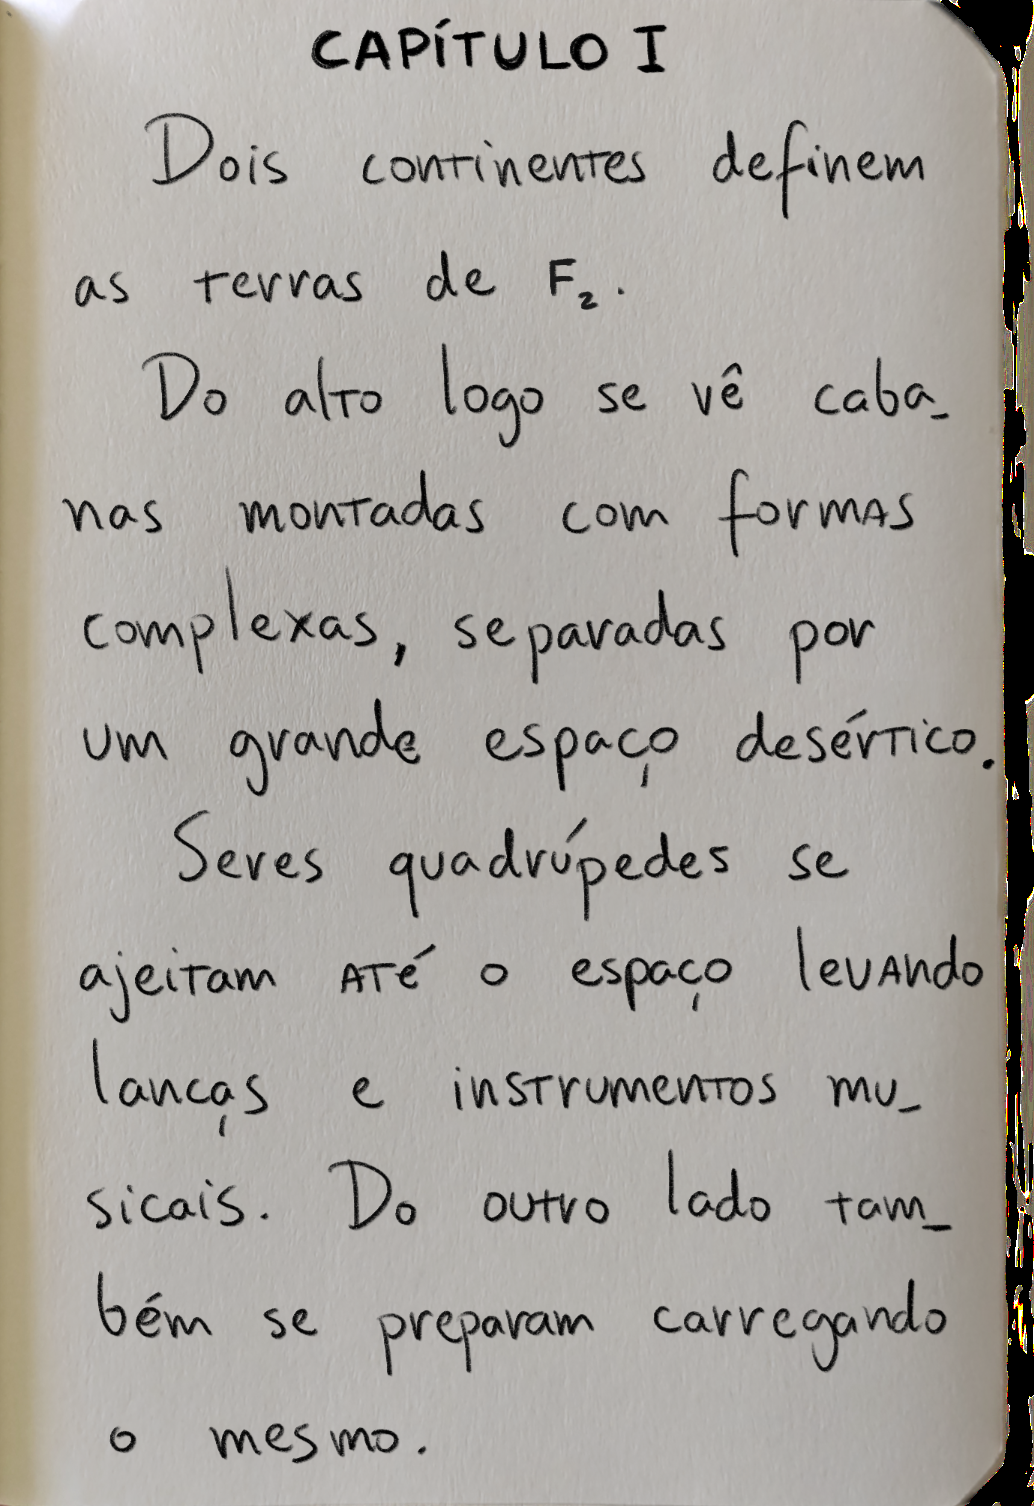 CAPÍTULO I
Dois continentes definem
as terras de F₂.
Do alto logo se vê caba_
nas montadas com formas
complexas, separadas por
um grande espaço desértico.
Seres quadrúpedes se
ajeitam até o espaço levando
lanças e instrumentos mu_
sicais. Do outro lado tam_
bém se preparam carregando
o mesmo.